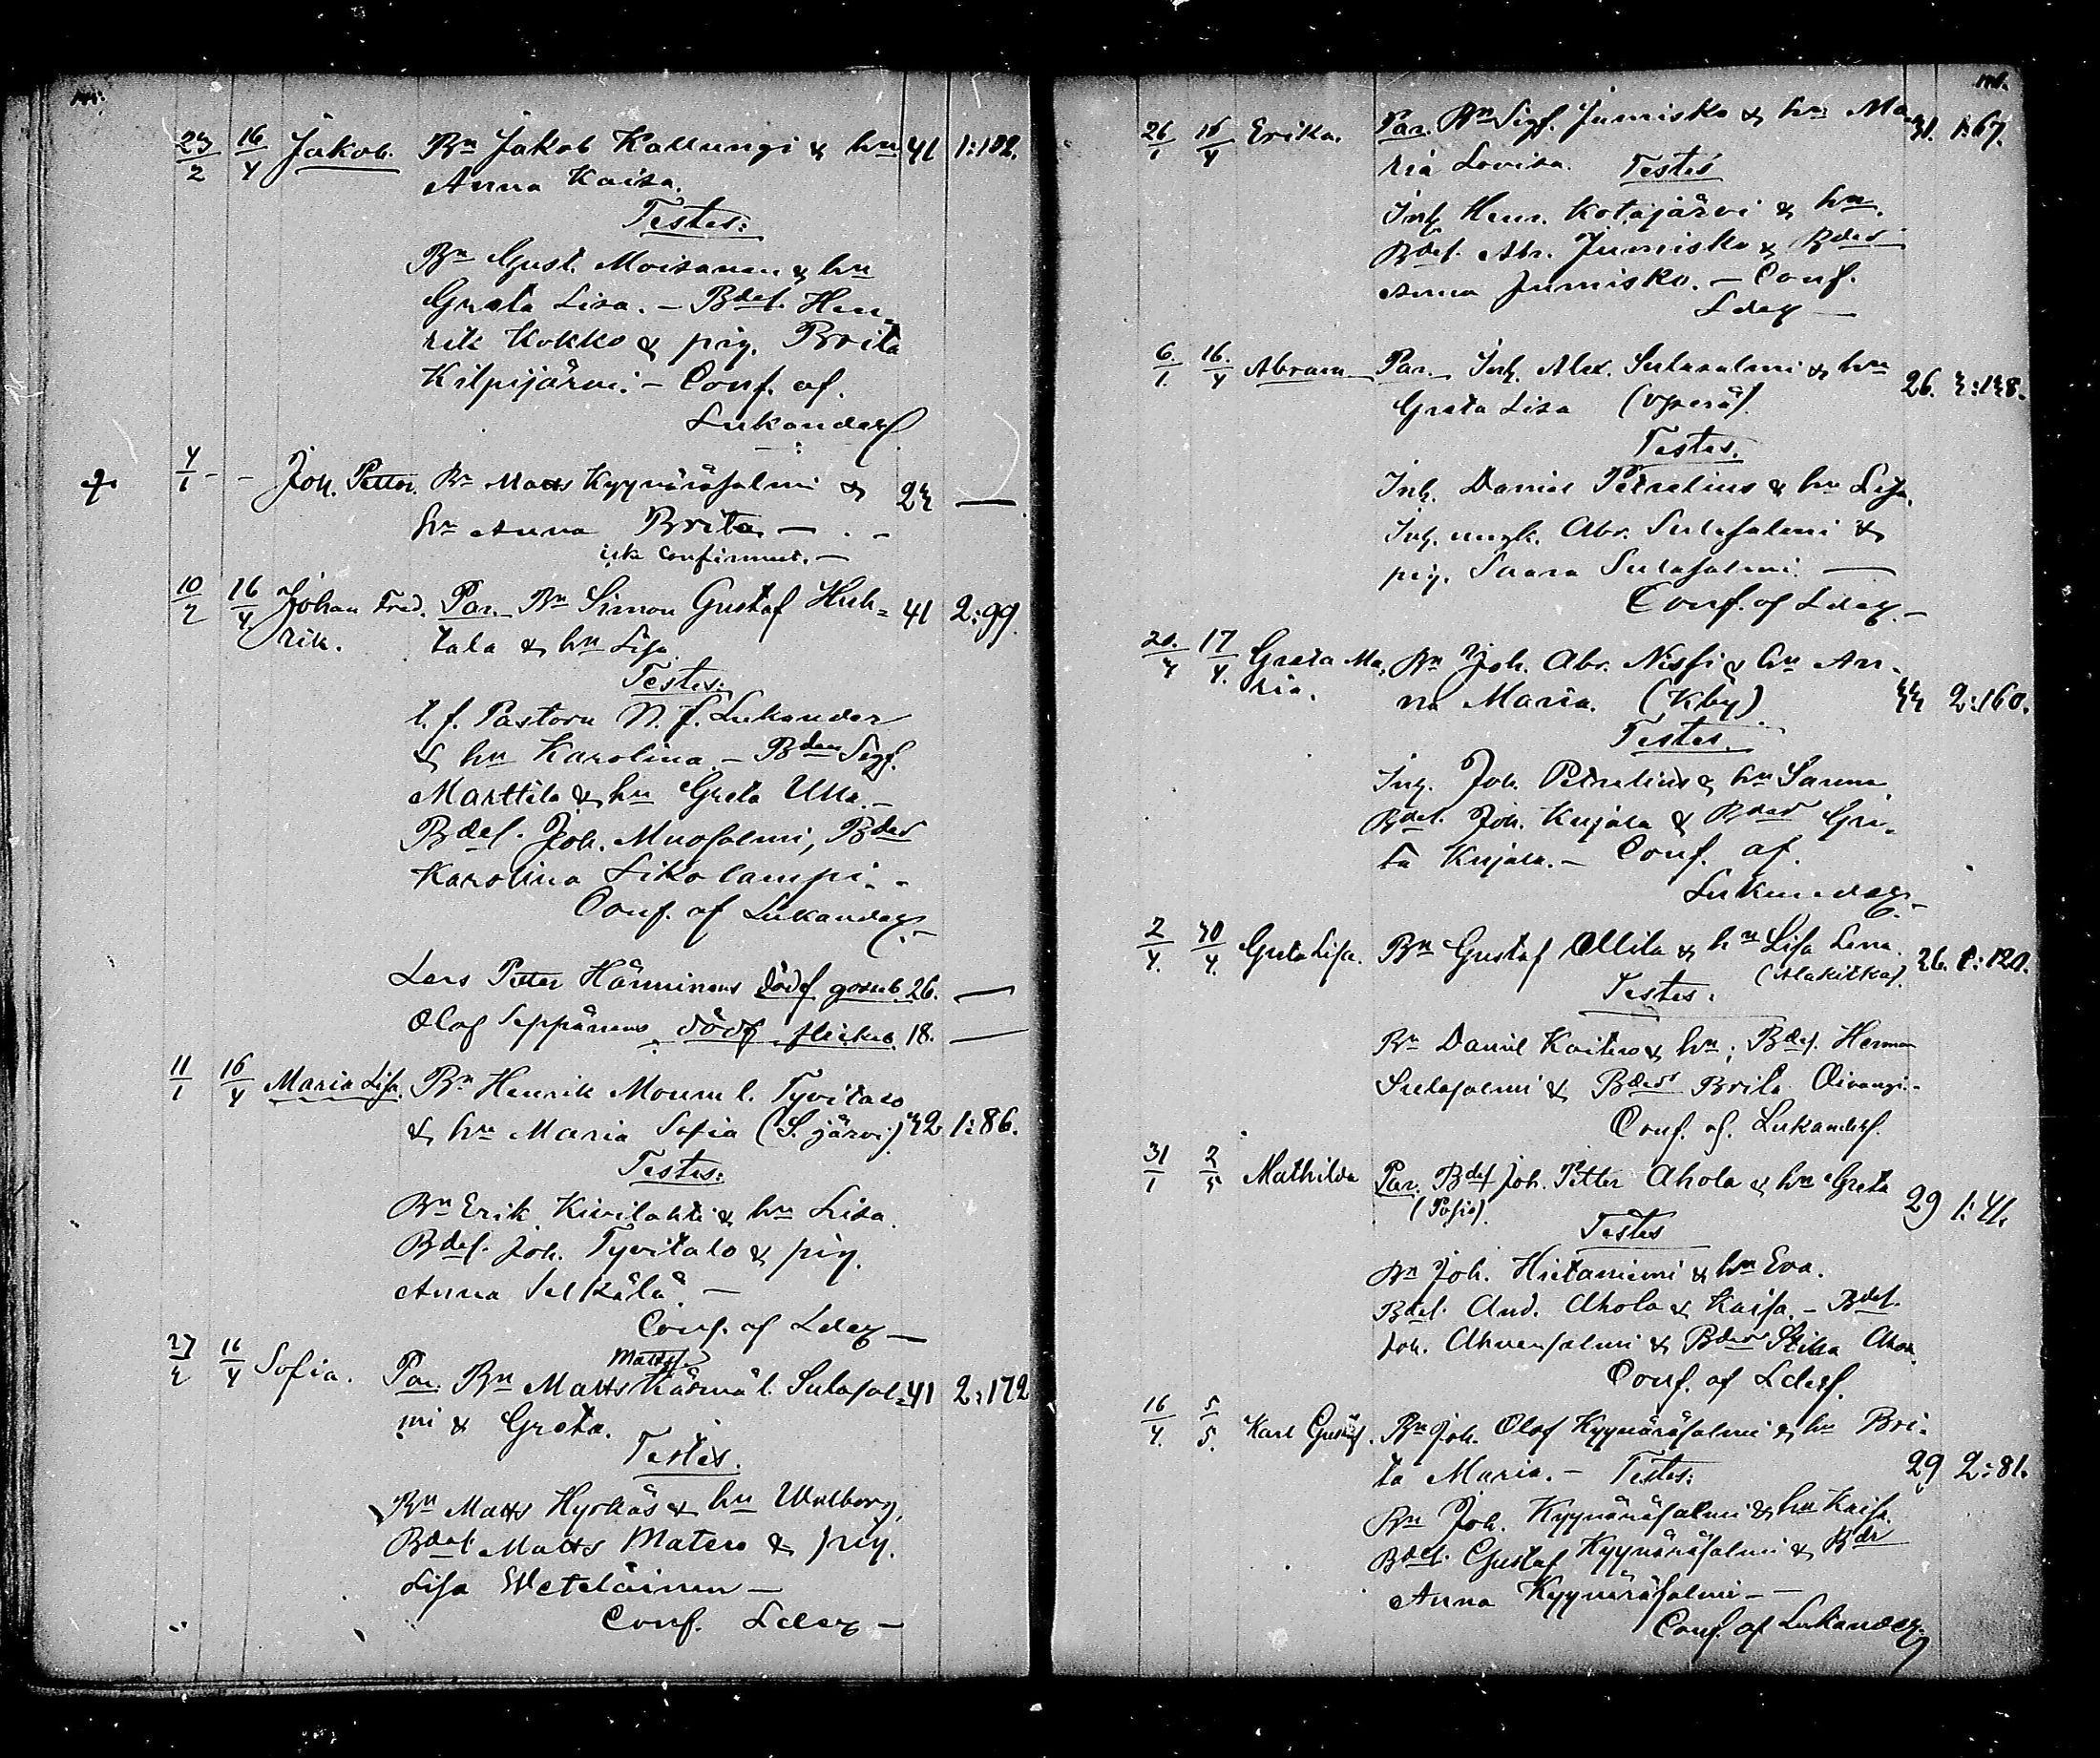 23/2 16/4 Jakob. Bn Jakob Kallungi & hu 41 1:102.
Anna Kaisa.
Testes:
Bn Gust. Moisanen & hu
Greta Lisa. – Bdes. Hen-
rik Kokko & pig. Brita
Kilpijärvi. – Conf. af.
Lukander
4/1 - - Joh. Petter. Bn Matts Kyynäräsalmi & 24 —
hu Anna Brita —
icke confirmerat. —
10/2 16/4 Johan Fred. Par. Bn Simon Gustaf Huh= 41 2:99.
rik. tala & hu Lisa.
Testes:
t. f. Pastorn N. J. Lukander
& hu Karolina. – Bden Sigf.
Marttila & hu Greta Ulla. –
Bdes. Joh. Muosalmi, Bdes
Karolina Sikolampi. -
Conf. af Lukander –
Lars Petter Hänninens dödf. gosseb. 26. —
Olof Seppänens dödf. flickeb. 18. —
11/1 16/4 Maria Lisa. Bn Henrik Mourul. Tyvitalo
& hu Maria Sofia (S. järvi) 32 1:86.
Testes:
Bn Erik Kivilahti & hu Lisa.
Bdes. Joh. Tyvitalo & pig.
Anna Selkälä. –
Conf. af Lder —
Mattss.
27/2 16/4 Sofia. Par. Bn Matts Kärnä l. Sulasal= 41 2:172
mi & Greta.
Testes.
Bn Matts Hyrkäs & hu Walborg,
Bdes. Matts Matero & pig.
Lisa Weteläinen —
Conf. Lder –
26/1 16/4 Erika. Par. Bn Sigf. Jumisko & hu Ma- 31. 1:67.
ria Lovisa. Testes
Inh. Henr. Kotajärvi & hu.
Bdes. Abr. Jumisko & Bdes
Anna Jumisko. – Conf.
Lder —
6/1 16/4 Abram Par. Inh. Alex. Sulasalmi & hu 26. 2:138.
Greta Lisa
Testes.
Inh. Daniel Petrelius & hu Lisa.
Inh. ungk. Abr. Sulasalmi &
pig. Saara Sulasalmi. —
Conf. af Lder. –
20/3 17/4 Greta Ma- Bn Joh. Abr. Nissi & hu An-
ria. na Maria. (Kby) 33 2:160.
Testes.
Inh. Joh. Petrelius & hu Sanna
Bdes. Joh. Kujala & Bdes Gre-
ta Kujala. – Conf. af.
Lukander –
2/4 30/4 Greta Lisa. Bn Gustaf Ollila & hu Lisa Lena. 26. 1:120.
(Alakitka).
Testes.
Bn Daniel Kaitera & hu; Bdes. Herman
Sulasalmi & Bdes Brita Oivangi. –
Conf. af. Lukander.
31/1 2/5 Mathilda Par. Bdes Joh. Petter Ahola & hu Greta 29 1:41.
(Posio).
Testes
Bn Joh. Hietaniemi & hu Eva.
Bdes. And. Ahola & Kaisa. – Bdes.
Joh. Ahvensalmi & Bdes Stina Ahola
Conf. af Lder.
16/4 5/5 Karl Gustaf. Bn Joh. Olof Kyynäräsalmi & hu Bri-
ta Maria. – Testes: 29 2:81.
Bn Joh. Kyynäräsalmi & hu Kaisa.
Bdes. Gustaf Kyynäräsalmi & Bdr
Anna Kyynäräsalmi –
Conf. af Lukander.